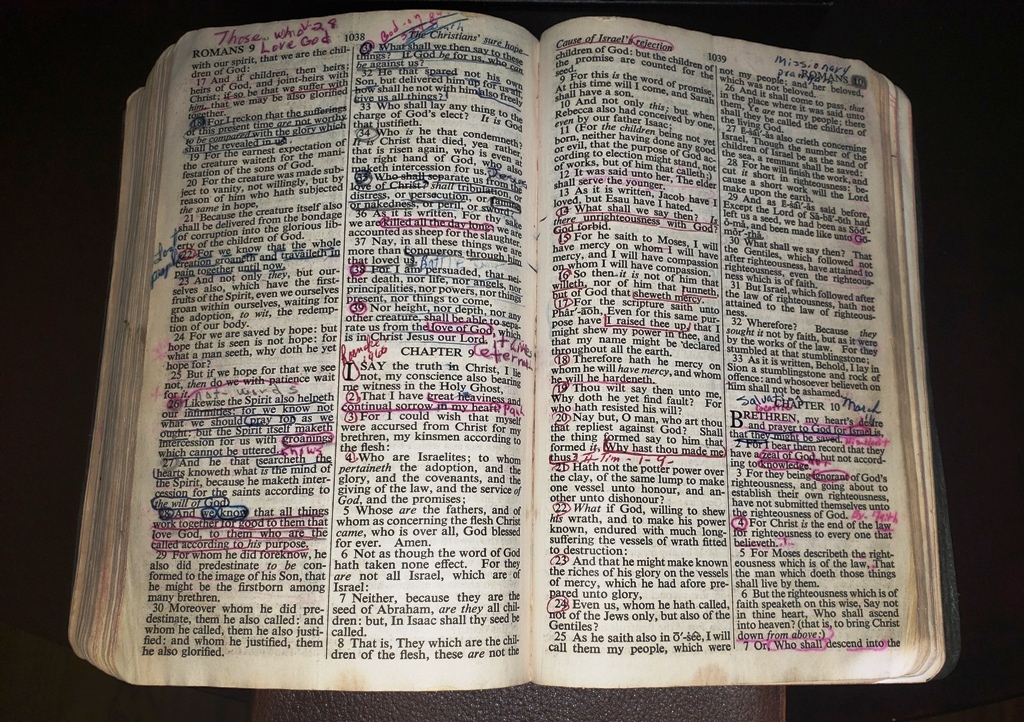 Those who
Love God
ROMANS 9
1038
The Christians' sure hope
with our spirit, that we are the chil-
dren of God:
17 And if children, then heirs;
heirs of God, and joint-heirs with
Christ; if so be that we suffer with
him, that we may be also glorified
together.
18 For I reckon that the sufferings
of this present time are not worthy
to be compared with the glory which
shall be revealed in us.
19 For the earnest expectation of
the creature waiteth for the mani-
festation of the sons of God.
20 For the creature was made sub-
ject to vanity, not willingly, but by
reason of him who hath subjected
the same in hope,
21 Because the creature itself also
shall be delivered from the bondage
of corruption into the glorious lib-
erty of the children of God.
22 For we know that the whole
creation groaneth and travaileth in
pain together until now.
23 And not only they, but our-
selves also, which have the first-
fruits of the Spirit, even we ourselves
groan within ourselves, waiting for
the adoption, to wit, the redemp-
tion of our body.
24 For we are saved by hope: but
hope that is seen is not hope: for
what a man seeth, why doth he yet
hope for?
25 But if we hope for that we see
not, then do we with patience wait
for it.
26 Likewise the Spirit also helpeth
our infirmities: for we know not
what we should pray for as we
ought: but the Spirit itself maketh
intercession for us with groanings
which cannot be uttered.
27 And he that searcheth the
hearts knoweth what is the mind of
the Spirit, because he maketh inter-
cession for the saints according to
the will of God.
28 And we know that all things
work together for good to them that
love God, to them who are the
called according to his purpose.
29 For whom he did foreknow, he
also did predestinate to be con-
formed to the image of his Son, that
he might be the firstborn among
many brethren.
30 Moreover whom he did pre-
destinate, them he also called: and
whom he called, them he also justi-
fied: and whom he justified, them
he also glorified.
31 What shall we then say to these
things? If God be for us, who can
be against us?
32 He that spared not his own
Son, but delivered him up for us all,
how shall he not with him also freely
give us all things?
33 Who shall lay any thing to the
charge of God's elect? It is God
that justifieth.
34 Who is he that condemneth?
It is Christ that died, yea rather,
that is risen again, who is even at
the right hand of God, who also
maketh intercession for us.
35 Who shall separate us from the
love of Christ? shall tribulation, or
distress, or persecution, or famine,
or nakedness, or peril, or sword?
36 As it is written, For thy sake
we are killed all the day long; we are
accounted as sheep for the slaughter.
37 Nay, in all these things we are
more than conquerors through him
that loved us.
38 For I am persuaded, that nei-
ther death, nor life, nor angels, nor
principalities, nor powers, nor things
present, nor things to come,
39 Nor height, nor depth, nor any
other creature, shall be able to sepa-
rate us from the love of God, which
is in Christ Jesus our Lord.
CHAPTER 9
I SAY the truth in Christ, I lie
not, my conscience also bearing
me witness in the Holy Ghost,
2 That I have great heaviness and
continual sorrow in my heart.
3 For I could wish that myself
were accursed from Christ for my
brethren, my kinsmen according to
the flesh:
4 Who are Israelites; to whom
pertaineth the adoption, and the
glory, and the covenants, and the
giving of the law, and the service of
God, and the promises;
5 Whose are the fathers, and of
whom as concerning the flesh Christ
came, who is over all, God blessed
for ever. Amen.
6 Not as though the word of God
hath taken none effect. For they
are not all Israel, which are of
Israel:
7 Neither, because they are the
seed of Abraham, are they all chil-
dren: but, In Isaac shall thy seed be
called.
8 That is, They which are the chil-
dren of the flesh, these are not the
Cause of Israel's rejection
1039
Missionary
ROMANS 10
children of God: but the children of
the promise are counted for the
seed.
9 For this is the word of promise,
At this time will I come, and Sarah
shall have a son.
10 And not only this; but when
Rebecca also had conceived by one,
even by our father Isaac;
11 (For the children being not yet
born, neither having done any good
or evil, that the purpose of God ac-
cording to election might stand, not
of works, but of him that calleth;)
12 It was said unto her, The elder
shall serve the younger.
13 As it is written, Jacob have I
loved, but Esau have I hated.
14 What shall we say then? Is
there unrighteousness with God?
God forbid.
15 For he saith to Moses, I will
have mercy on whom I will have
mercy, and I will have compassion
on whom I will have compassion.
16 So then it is not of him that
willeth, nor of him that runneth,
but of God that sheweth mercy.
17 For the scripture saith unto
Phâr'-aōh, Even for this same pur-
pose have I raised thee up, that I
might shew my power in thee, and
that my name might be declared
throughout all the earth.
18 Therefore hath he mercy on
whom he will have mercy, and whom
he will he hardeneth.
19 Thou wilt say then unto me,
Why doth he yet find fault? For
who hath resisted his will?
20 Nay but, O man, who art thou
that repliest against God? Shall
the thing formed say to him that
formed it, Why hast thou made me
thus? II Tim-1-9-
21 Hath not the potter power over
the clay, of the same lump to make
one vessel unto honour, and an-
other unto dishonour?
22 What if God, willing to shew
his wrath, and to make his power
known, endured with much long-
suffering the vessels of wrath fitted
to destruction:
23 And that he might make known
the riches of his glory on the vessels
of mercy, which he had afore pre-
pared unto glory,
24 Even us, whom he hath called,
not of the Jews only, but also of the
Gentiles?
25 As he saith also in Ō'-sēe, I will
call them my people, which were
not my people; and her beloved,
which was not beloved.
26 And it shall come to pass, that
in the place where it was said unto
them, Ye are not my people; there
shall they be called the children of
the living God.
27 E-sâi'-as also crieth concerning
Israel, Though the number of the
children of Israel be as the sand of
the sea, a remnant shall be saved:
28 For he will finish the work, and
cut it short in righteousness: be-
cause a short work will the Lord
make upon the earth.
29 And as E-sâi'-as said before,
Except the Lord of Săb'-ă-ōth had
left us a seed, we had been as Sŏd'-
ŏ-mȧ, and been made like unto Gō-
mŏr'-rhȧ.
30 What shall we say then? That
the Gentiles, which followed not
after righteousness, have attained to
righteousness, even the righteous-
ness which is of faith.
31 But Israel, which followed after
the law of righteousness, hath not
attained to the law of righteous-
ness.
32 Wherefore? Because they
sought it not by faith, but as it were
by the works of the law. For they
stumbled at that stumblingstone;
33 As it is written, Behold, I lay in
Sion a stumblingstone and rock of
offence: and whosoever believeth on
him shall not be ashamed.
CHAPTER 10
BRETHREN, my heart's desire
and prayer to God for Israel is,
that they might be saved.
2 For I bear them record that they
have a zeal of God, but not accord-
ing to knowledge.
3 For they being ignorant of God's
righteousness, and going about to
establish their own righteousness,
have not submitted themselves unto
the righteousness of God.
4 For Christ is the end of the law
for righteousness to every one that
believeth.
5 For Moses describeth the right-
eousness which is of the law, That
the man which doeth those things
shall live by them.
6 But the righteousness which is of
faith speaketh on this wise, Say not
in thine heart, Who shall ascend
into heaven? (that is, to bring Christ
down from above:)
7 Or, Who shall descend into the